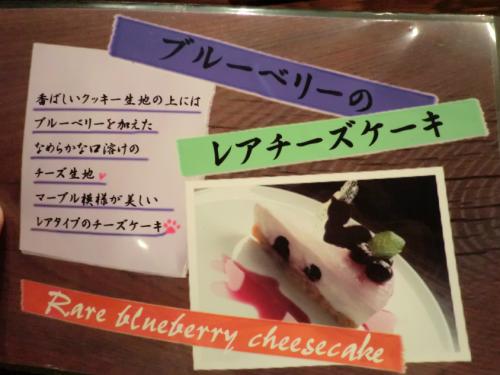 ブルーベリーの
レアチーズケーキ
香ばしいクッキー生地の上には
ブルーベリーを加えた
なめらかな口溶けの
チーズ生地
マーブル模様が美しい
レアタイプのチーズケーキ
Rare blueberry cheesecake